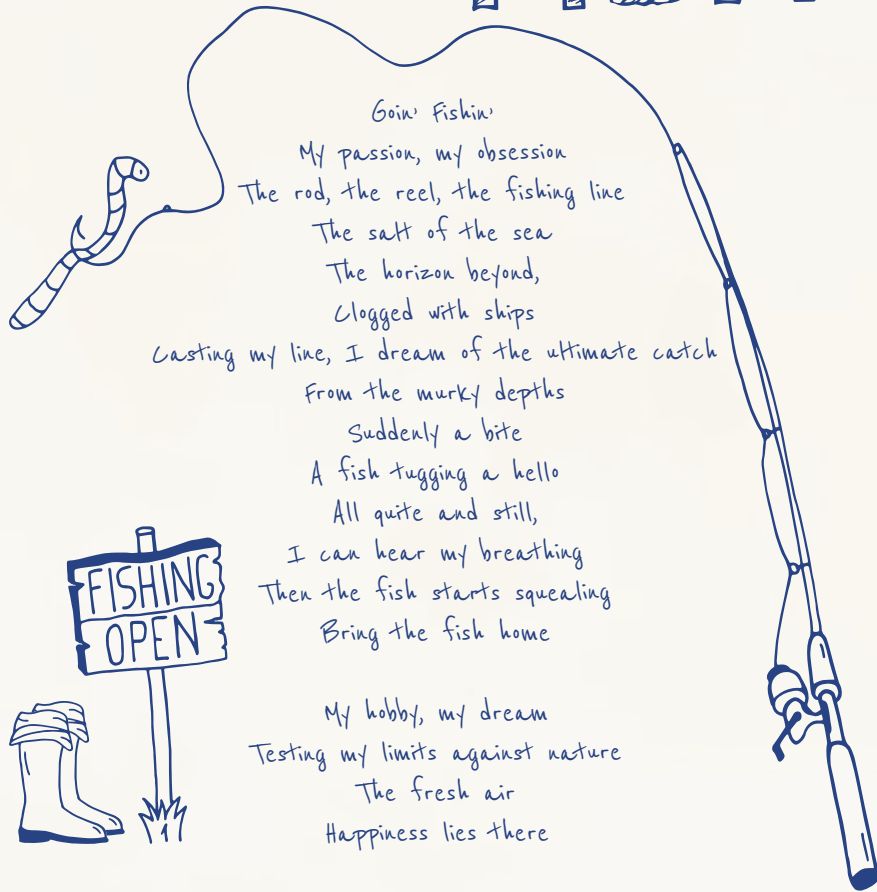 Goin' Fishin'
My passion, my obsession
The rod, the reel, the fishing line
The salt of the sea
The horizon beyond,
Clogged with ships
Casting my line, I dream of the ultimate catch
From the murky depths
Suddenly a bite
A fish tugging a hello
All quite and still,
I can hear my breathing
Then the fish starts squealing
Bring the fish home
FISHING
OPEN
My hobby, my dream
Testing my limits against nature
The fresh air
Happiness lies there